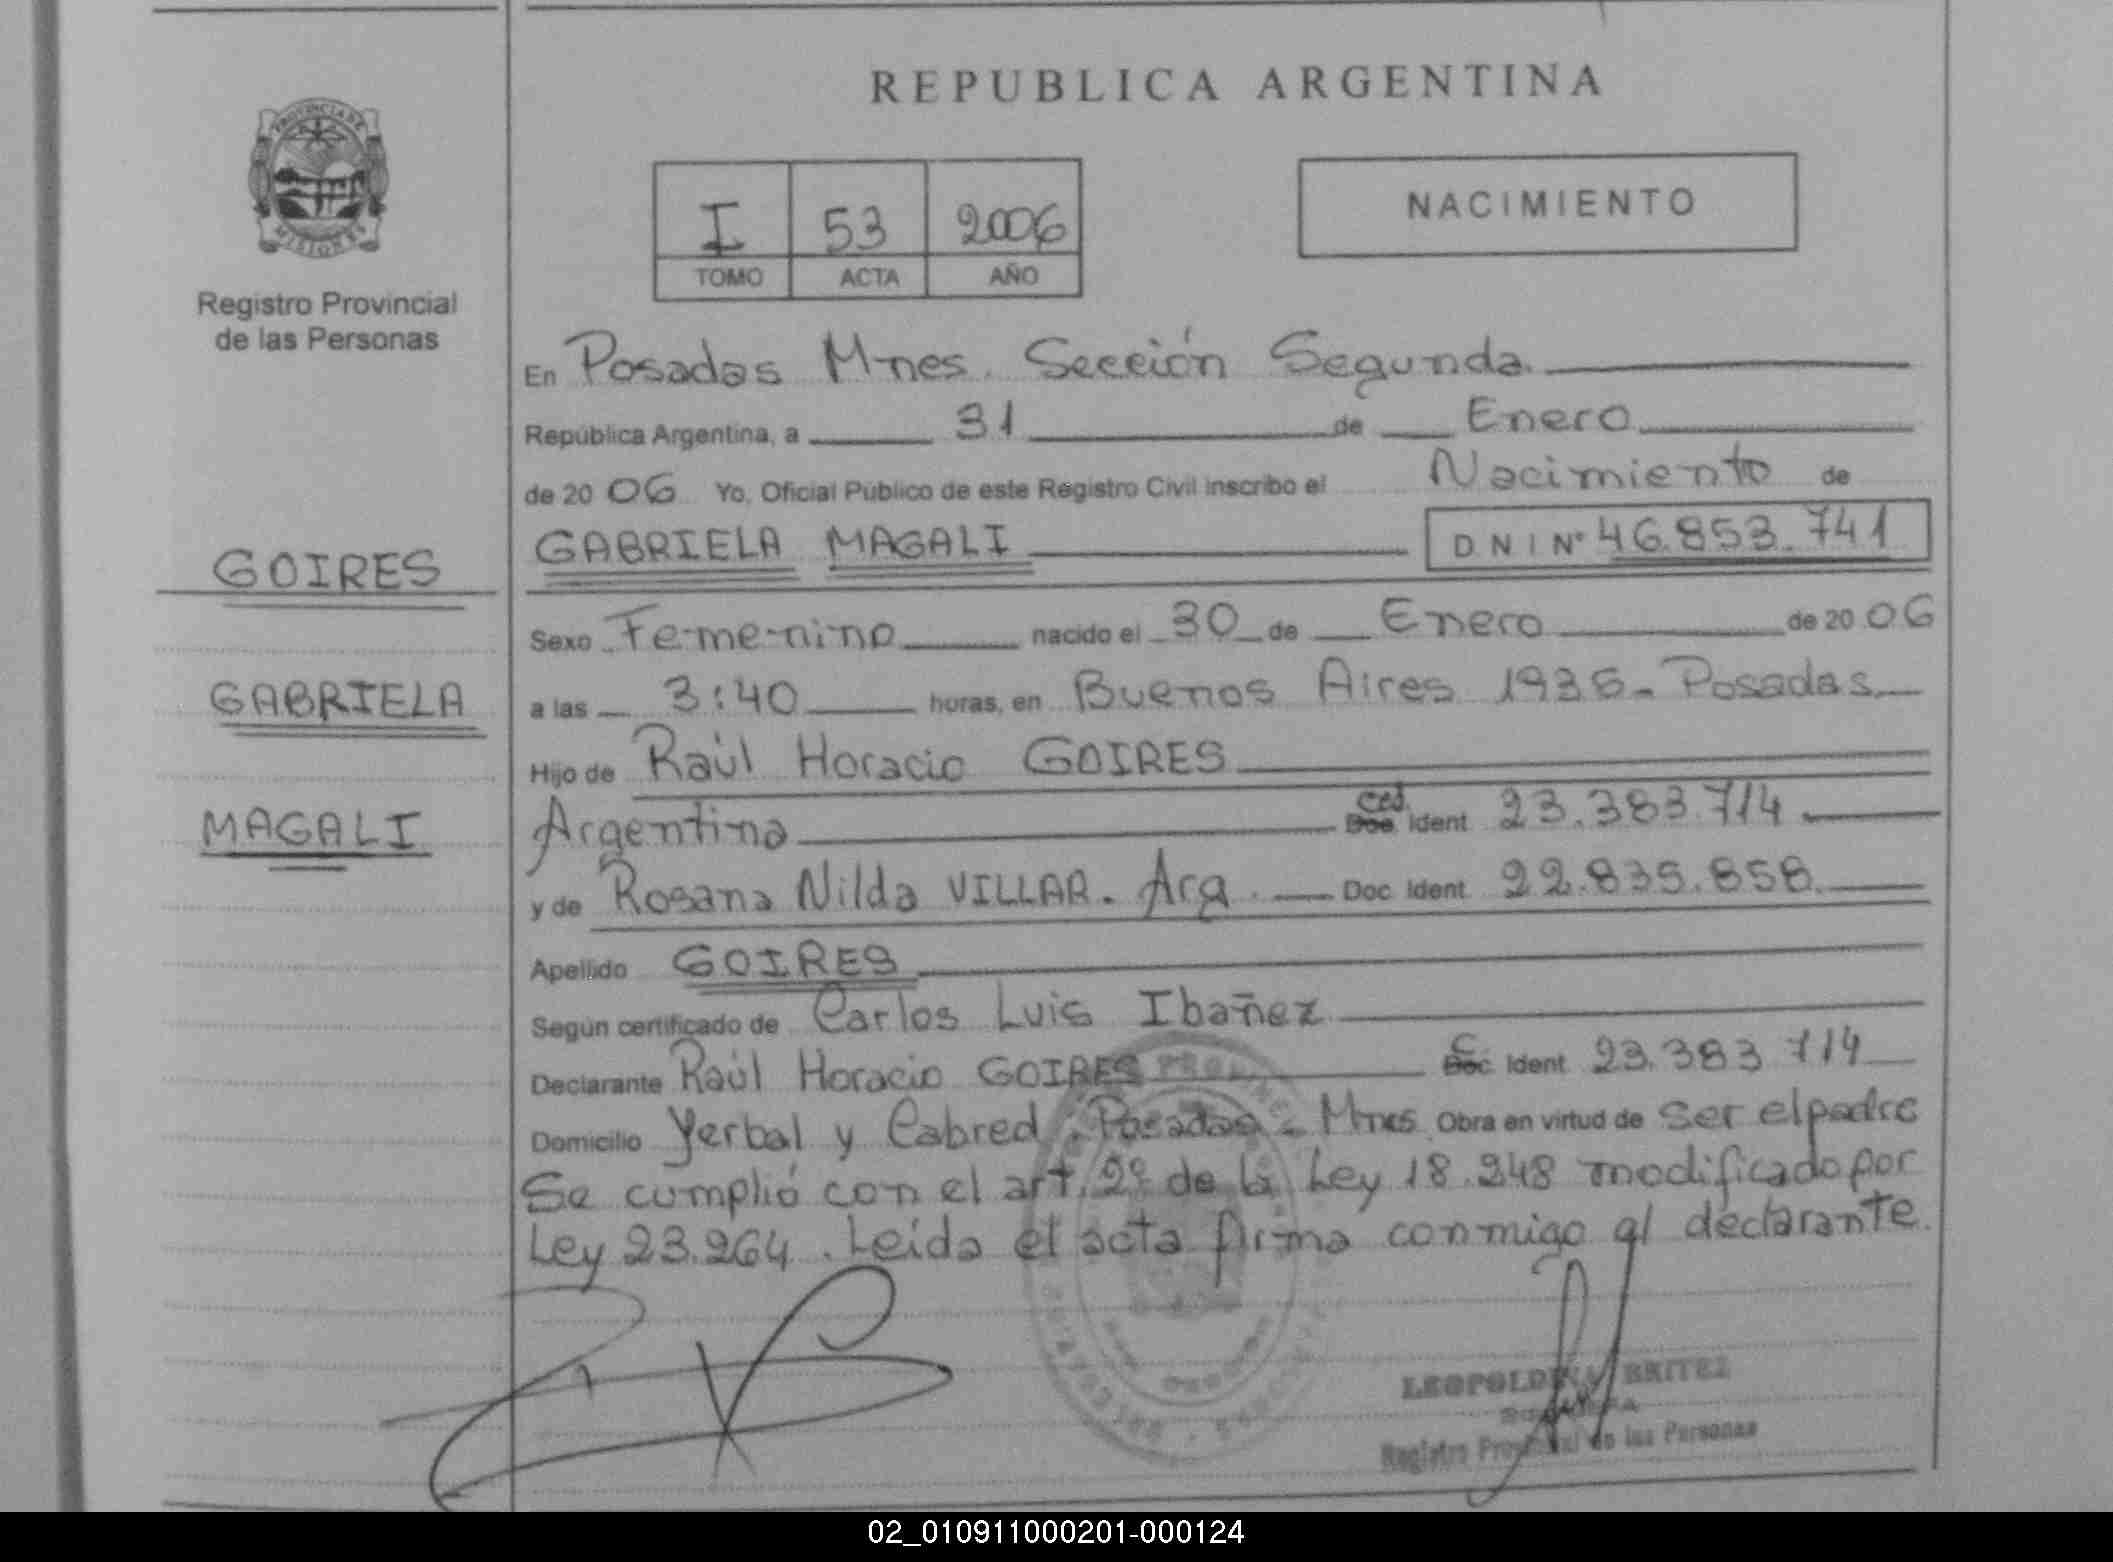 REPUBLICA ARGENTINA
PROVINCIA DE
MISIONES
Registro Provincial
de las Personas
I 53 2006
TOMO ACTA AÑO
NACIMIENTO
En Posadas Mnes. Sección Segunda.
República Argentina, a 31 de Enero
de 20 06 Yo, Oficial Público de este Registro Civil inscribo el Nacimiento de
GOIRES
GABRIELA MAGALI DNI Nº 46.853.741
Sexo Femenino nacido el 30 de Enero de 20 06
GABRIELA
a las 3:40 horas, en Buenos Aires 1935. Posadas
Hijo de Raúl Horacio GOIRES
MAGALI
Argentina Ced. Doc. Ident 23.383.714
y de Rosana Nilda VILLAR. Arg. Doc. Ident 22.835.858.
Apellido GOIRES
Según certificado de Carlos Luis Ibañez
Declarante Raúl Horacio GOIRES C Doc Ident. 23.383 714
Domicilio Yerbal y Cabred. Posadas - Mnes. Obra en virtud de ser el padre
Se cumplió con el art. 2º de la Ley 18.248 modificado por
Ley 23.264. Leida el acta firma conmigo el declarante.
LEOPOLDINA BRITEZ
Registro Provincial de las Personas
02_010911000201-000124